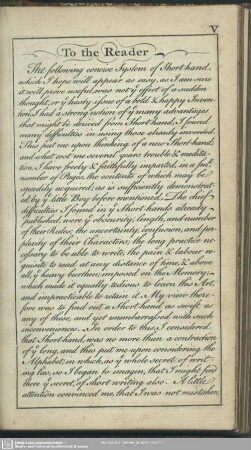 V
To the Reader
The following concise System of Short-hand,
which I hope will appear as easy, as I am sure
it will prove useful, was not ye effect of a sudden
thought, or ye hasty issue of a bold & happy Inven-
tion. I had a strong notion of ye many advantages
that might be derived from Short-hand; I found
many difficulties in using those already invented.
This put me upon thinking of a new Short-hand;
and what cost me several years trouble & medita-
tion, I have freely & faithfully imparted, in a few
number of Pages, the contents of which may be
speedily acquired; as is sufficiently demonstrat-
ed, by ye little Boy before mentioned. The chief
difficulties I found in ye Short-hands already
published, were ye obscurity, length, and number
of their Rules; the uncertainty, confusion, and per-
plexity of their Characters; the long practice ne-
cessary to be able to write; the pain & labour re-
quisite to read at any distance of time; & above
all, ye heavy burthen imposed on the Memory;
which made it equally tedious to learn this Art,
and impracticable to retain it. My view there-
fore was to find out a Short-hand as swift as
any of these, and yet unembarrassed with such
inconveniences. In order to this, I considered
that Short-hand, was no more than a contraction
of ye long, and this put me upon considering the
Alphabet; in which, as ye whole secret of writ-
ing lies, so I began to imagin, that I might find
there ye secret, of short writing also. A little
attention convinced me, that I was not mistaken,